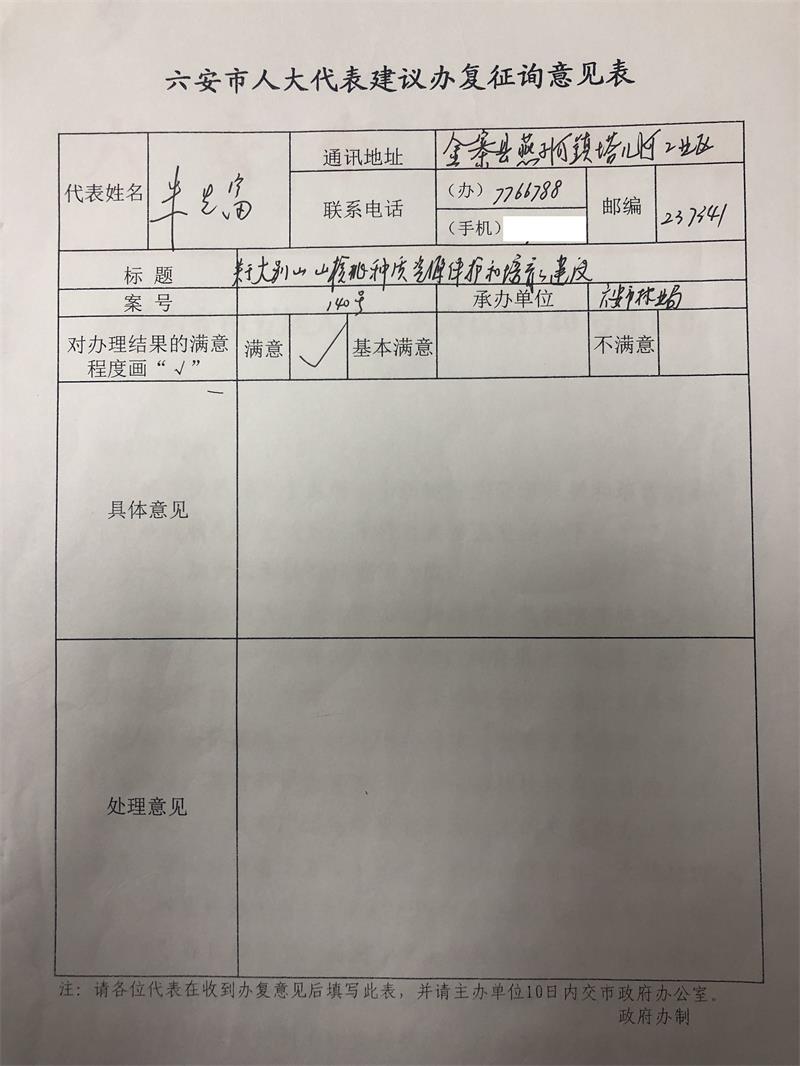 六安市人大代表建议办复征询意见表
代表姓名
通讯地址 金寨县燕子河镇塔儿河工业区
联系电话 (办) 7766788 邮编 237341
(手机)
标 题 关于大别山山核桃种质资源保护和培育的建议
案 号 140号 承办单位 六安市林业局
对办理结果的满意 满意 √ 基本满意 不满意
程度画“√”
具体意见
处理意见
注: 请各位代表在收到办复意见后填写此表, 并请主办单位10日内交市政府办公室。
政府办制